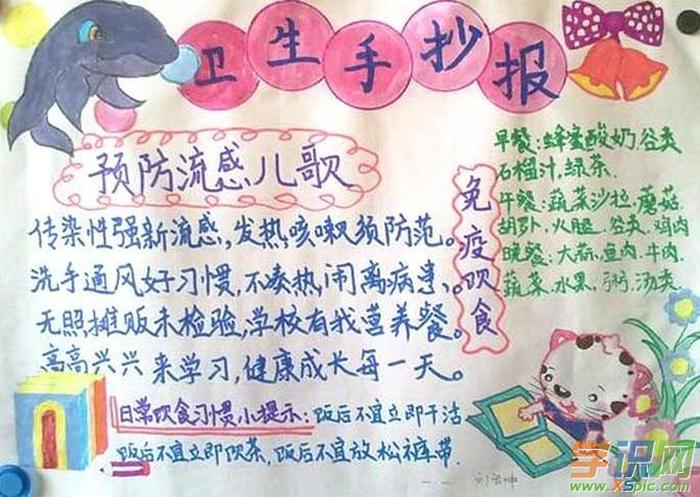 卫生手抄报
预防流感儿歌
传染性强新流感,发热咳嗽须防范。
洗手通风好习惯,不凑热闹离病患。
无照摊贩未检验,学校有我营养餐。
高高兴兴来学习,健康成长每一天。
免疫饮食
早餐:蜂蜜酸奶谷类
石榴汁,绿茶.
午餐:蔬菜沙拉.蘑菇.
胡萝卜.火腿.谷类.鸡肉
晚餐:大蒜.鱼肉.牛肉.
蔬菜.水果.粥.汤类.
日常饮食习惯小提示:饭后不宜立即干活
饭后不宜立即饮茶,饭后不宜放松裤带.
学识网
www.xspic.com